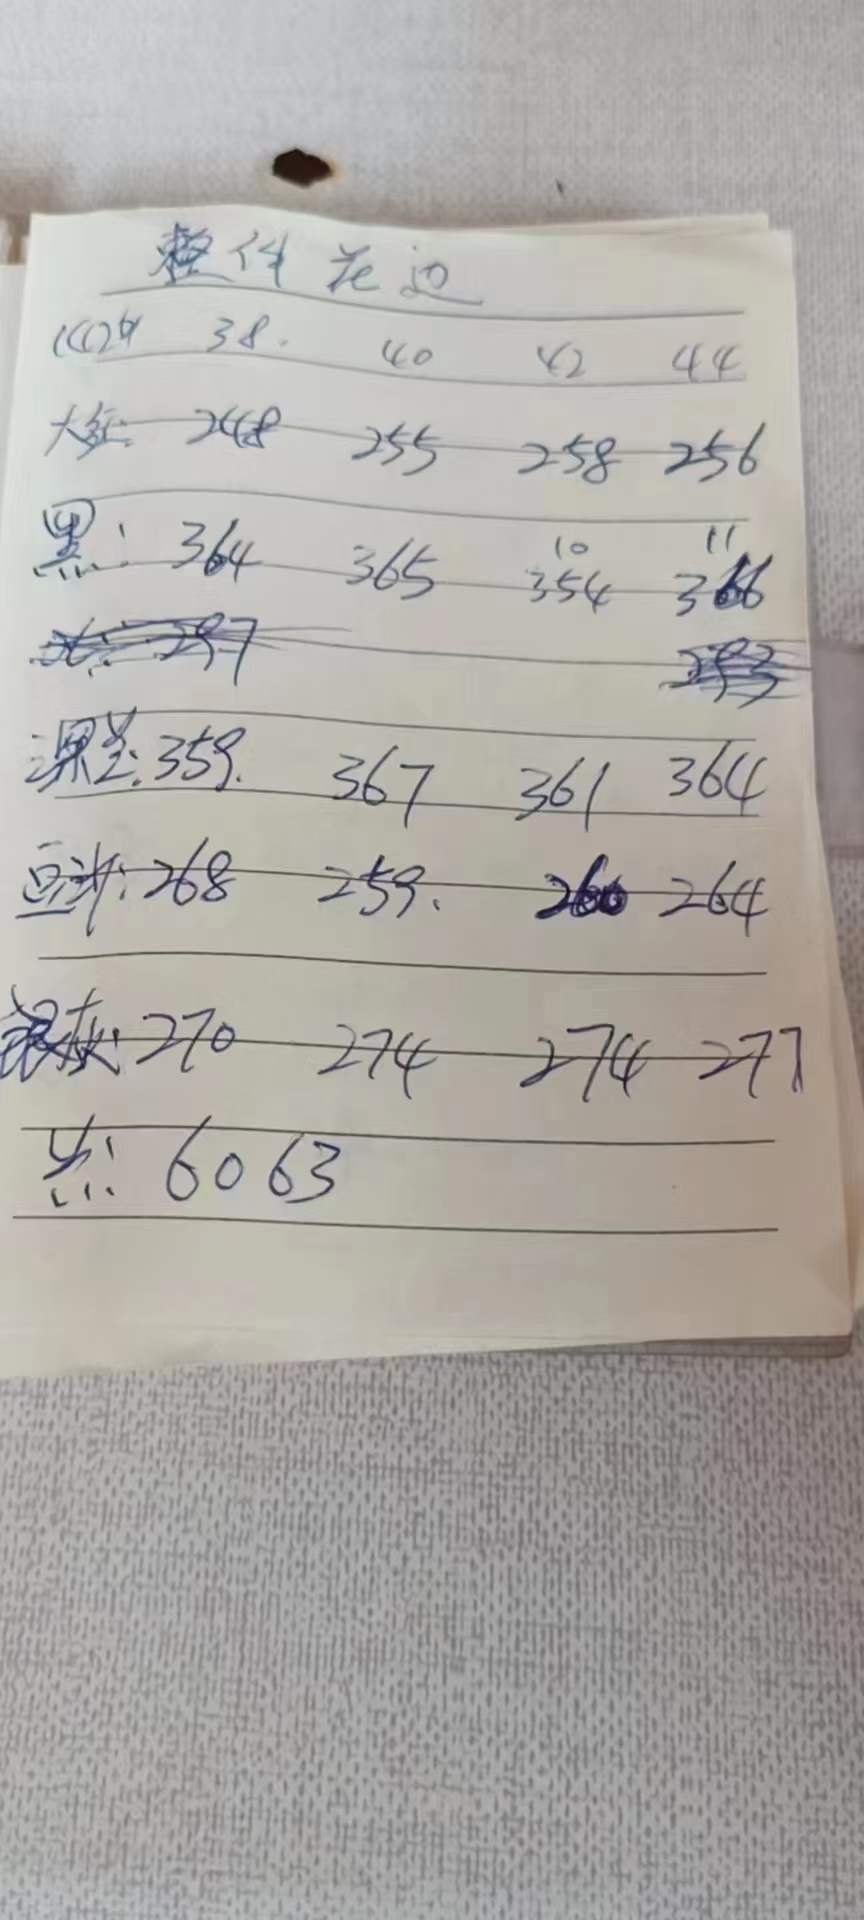 整件花边
38. 40 42 44
大红: 248 255 258 256
10 11
黑: 364 365 354 366
297 293
359. 367 361 364
豆沙: 268 259. 260 264
银灰: 270 274 274 277
共: 6063